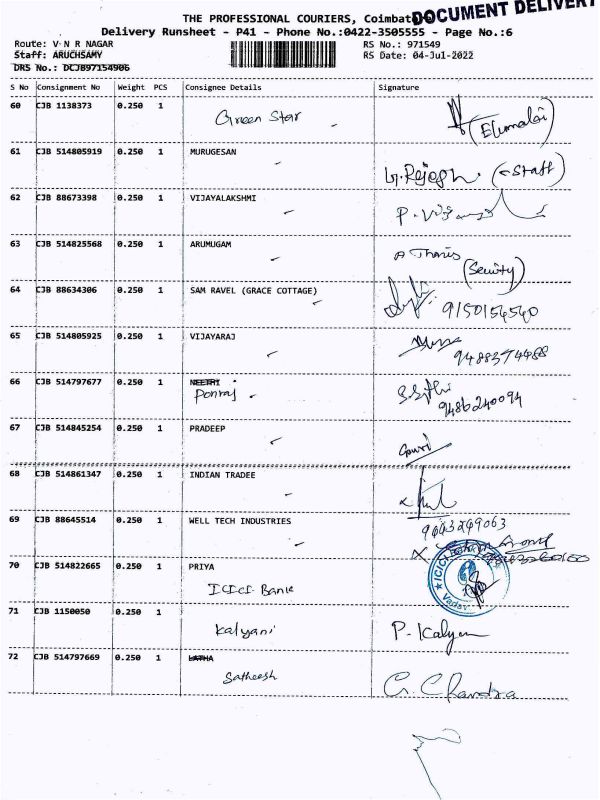 THE PROFESSIONAL COURIERS, Coimbato
DOCUMENT DELIVERY
Delivery Runsheet - P41 - Phone No.:0422-3505555 - Page No.:6
Route: V N R NAGAR RS No.: 971549
Staff: ARUCHSAMY RS Date: 04-Jul-2022
DRS No.: DCJB97154906
S No Consignment No Weight PCS Consignee Details Signature
60 CJB 1138373 0.250 1 Green Star
(Elumalai)
61 CJB 514805919 0.250 1 MURUGESAN
G.Rajesh. (Staff)
62 CJB 88673398 0.250 1 VIJAYALAKSHMI
63 CJB 514825568 0.250 1 ARUMUGAM
(Security)
64 CJB 88634306 0.250 1 SAM RAVEL (GRACE COTTAGE)
9150154540
65 CJB 514805925 0.250 1 VIJAYARAJ
9488374488
66 CJB 514797677 0.250 1 NEETHI
Ponraj
9486240094
67 CJB 514845254 0.250 1 PRADEEP
Gowri
68 CJB 514861347 0.250 1 INDIAN TRADEE
69 CJB 88645514 0.250 1 WELL TECH INDUSTRIES
9443249063
70 CJB 514822665 0.250 1 PRIYA
ICICI Bank
71 CJB 1150050 0.250 1
Kalyani P. Kalyani
72 CJB 514797669 0.250 1 LATHA
Satheesh G. Chandra